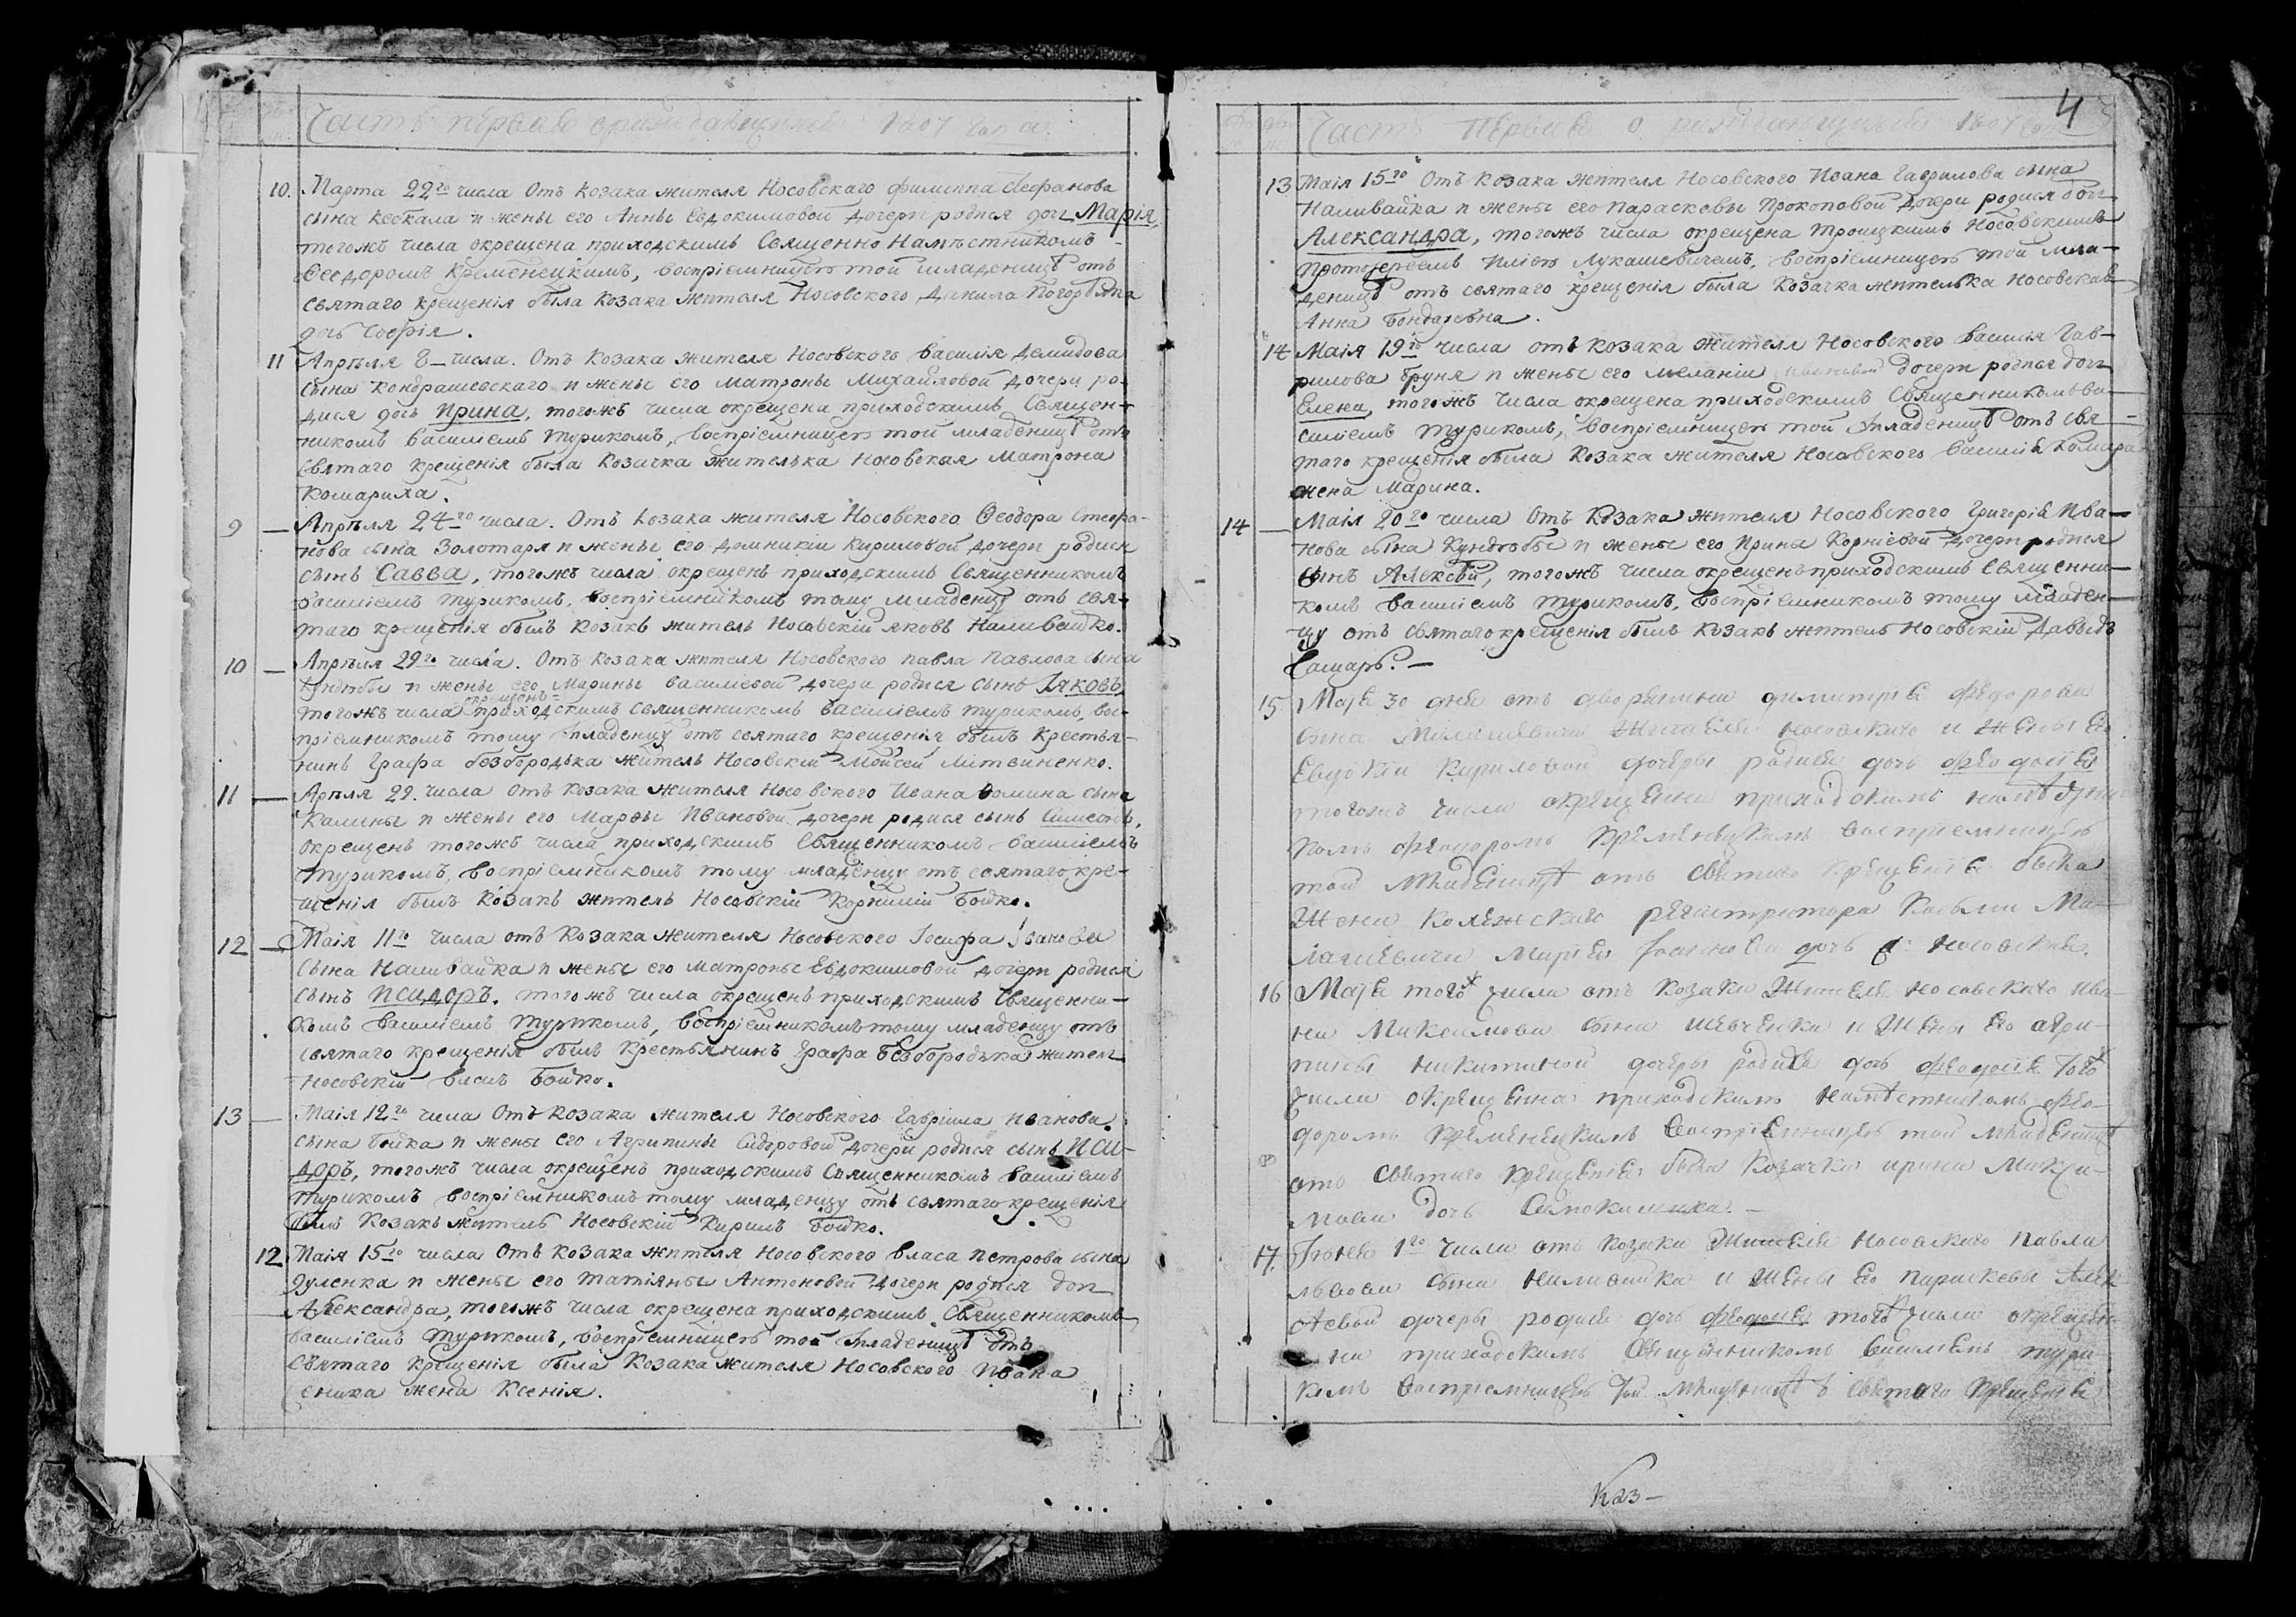 Часть первая о раждающихся 1807 года
10. Марта 22го числа Отъ козака жителя Носовскаго филиппа Стефанова
сына кескала и жены его Анны Евдокимовой дочери родися дочь Марія,
тогожъ числа окрещена приходскимъ Священно Намѣстникомъ
Ѳеодоромъ Кременецкимъ, воспріемницею той младеницѣ отъ
святаго крещенія была козака жителя Носовского Данила Погорѣлка
дочь Софія.
11 Апрѣля 8 числа. Отъ козака жителя Носовского василія Демидова
сына кондрашевскаго и жены его матроны Михайловой дочери ро-
дися дочь Ирина, тогожъ числа окрещена приходскимъ Священ-
никомъ василіемъ туриκомъ, воспріемницею той младеницѣ отъ
святаго крещенія была козачка жителька Носовская Матрона
комариха.
9 — Апрѣля 24го числа. Отъ козака жителя Носовского Ѳеодора Стефа-
нова сына Золотаря и жены его домникіи кириловой дочери родися
сынъ Савва, тогожъ числа окрещенъ приходскимъ Священникомъ
василіемъ туриκомъ, воспріемникомъ тому младенцу отъ свя-
таго крещенія былъ козакъ житель Носовскій яковъ Наливайко.
10 — Апрѣля 29го числа. Отъ козака жителя Носовского павла Павлова сына
кундюбы и жены его Марины василіевой дочери родися сынъ Іяковъ,
тогожъ числа окрещенъ приходскимъ священникомъ василіемъ туриκомъ, вос-
пріемникомъ тому младенцу отъ святаго крещенія былъ крестья-
нинъ Графа безбородька житель Носовскій Мойсей Литвиненко.
11 — Апрѣля 29. числа отъ козака жителя Носовского Ивана Ѳомина сына
Калины и жены его Марѳы Ивановой дочери родися сынъ Симеонъ,
окрещенъ тогожъ числа приходскимъ Священникомъ василіемъ
туриκомъ, воспріемникомъ тому младенцу отъ святаго кре-
щенія былъ козакъ житель Носовскій Корнилій Бойко.
12 — Маія 11го числа отъ козака жителя Носовского Іосифа Іванова
сына Наливайка и жены его матроны Евдокимовой дочери родися
сынъ Исидоръ. тогожъ числа окрещенъ приходскимъ Священни-
комъ василіемъ туриκомъ, воспріемникомъ тому младенцу отъ
святаго крещенія былъ крестьянинъ Графа Безбородька житель
Носовскій власъ Бойко.
13 — Маія 12го числа Отъ козака жителя Носовского Гавріила Иванова
сына бойка и жены его Агрипины Сидоровой дочери родися сынъ Иси-
доръ, тогожъ числа окрещенъ приходскимъ Священникомъ василіемъ
туриκомъ воспріемникомъ тому младенцу отъ святаго крещенія
былъ козакъ житель Носовскій Кирилъ Бойко.
12 Маія 15го числа Отъ козака жителя Носовского власа петрова сына
зуленка и жены его татіяны Антоновой дочери родися дочь
Александра, тогожъ числа окрещена приходскимъ Священникомъ
василіемъ туриκомъ, воспріемницею той младеницѣ отъ
святаго крещенія была козака жителя Носовского Ивана
еника жена Ксенія.
4
Часть первая о раждающихся 1807 года
13 Маія 15го Отъ козака жителя Носовского Ивана Гаврилова сына
Наливайка и жены его Парасковы Прокоповой дочери родися дочь
Александра, тогожъ числа окрещена троицкимъ Носовскимъ
протоіереемъ Иліею Лукашевичемъ, воспріемницею той мла-
деницѣ отъ святаго крещенія была козачка жителька Носовская
Анна Бондаревна.
14 Маія 19го числа отъ козака жителя Носовского василія Гав-
рилова бруня и жены его меланіи дочери родися дочь
Елена, тогожъ числа окрещена приходскимъ Священникомъ ва-
силіемъ туриκомъ, воспріемницею той младеницѣ отъ свя-
таго крещенія была козака жителя Носовского василія комара
жена Марина.
14 — Маія 20го числа Отъ козака жителя Носовского Григорія Ива-
нова сына Кундюбы и жены его Ирины Корніевой дочери родися
сынъ Алексѣй, тогожъ числа окрещенъ приходскимъ Священни-
комъ василіемъ туриκомъ, воспріемникомъ тому младен-
цу отъ святаго крещенія былъ козакъ житель Носовскій Давыдъ
комаръ. —
15 Маія 30 дня отъ дворянина димитрія федорова
сына Милашевича жителя носовского и жены его
Евдокіи кириловой дочеры родися дочь феодосія
тогожъ числа окрещенна приходскимъ намѣстни-
комъ феодоромъ кременецкимъ воспріемницею
той младеницѣ отъ святаго крещенія была
жена колежского регистратора Ма-
лашевича марія Іоаннова дочь Носовская.
16 Маія тогож числа отъ козака жителя носовского ива-
на Максимова сына шевченка и жены его агри-
пины никитиной дочеры родися дочь феодосія того
числа окрещенна приходскимъ намѣстникомъ фео-
доромъ кременецкимъ воспріемницею той младеницѣ
отъ святаго крещенія была козачка ирина макси-
мова дочь
17. Іюня 1го числа отъ козака жителя носовского павла
львова сына наливайка и жены его параскевы Алек-
сѣевой дочеры родися дочь феодосія тогож числа окреще-
на приходскимъ священникомъ василіемъ тури-
комъ воспріемницею той младеницѣ ѿ святаго крещенія
Каз-